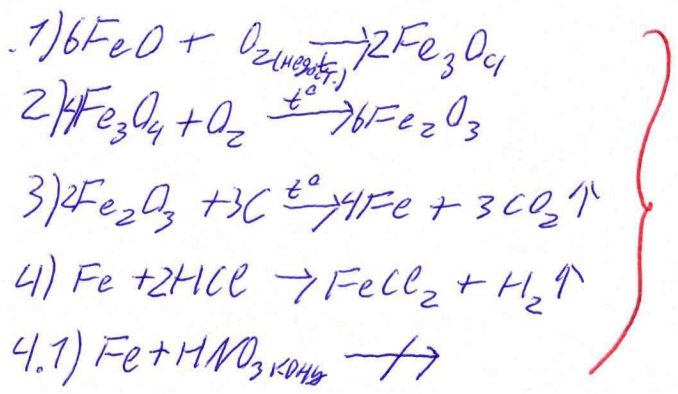 1) 6FeO + O₂(недост.) → 2Fe₃O₄
2) 4Fe₃O₄ + O₂ t° → 6Fe₂O₃
3) 2Fe₂O₃ + 3C t° → 4Fe + 3CO₂↑
4) Fe + 2HCl → FeCl₂ + H₂↑
4.1) Fe + HNO₃ конц ↛